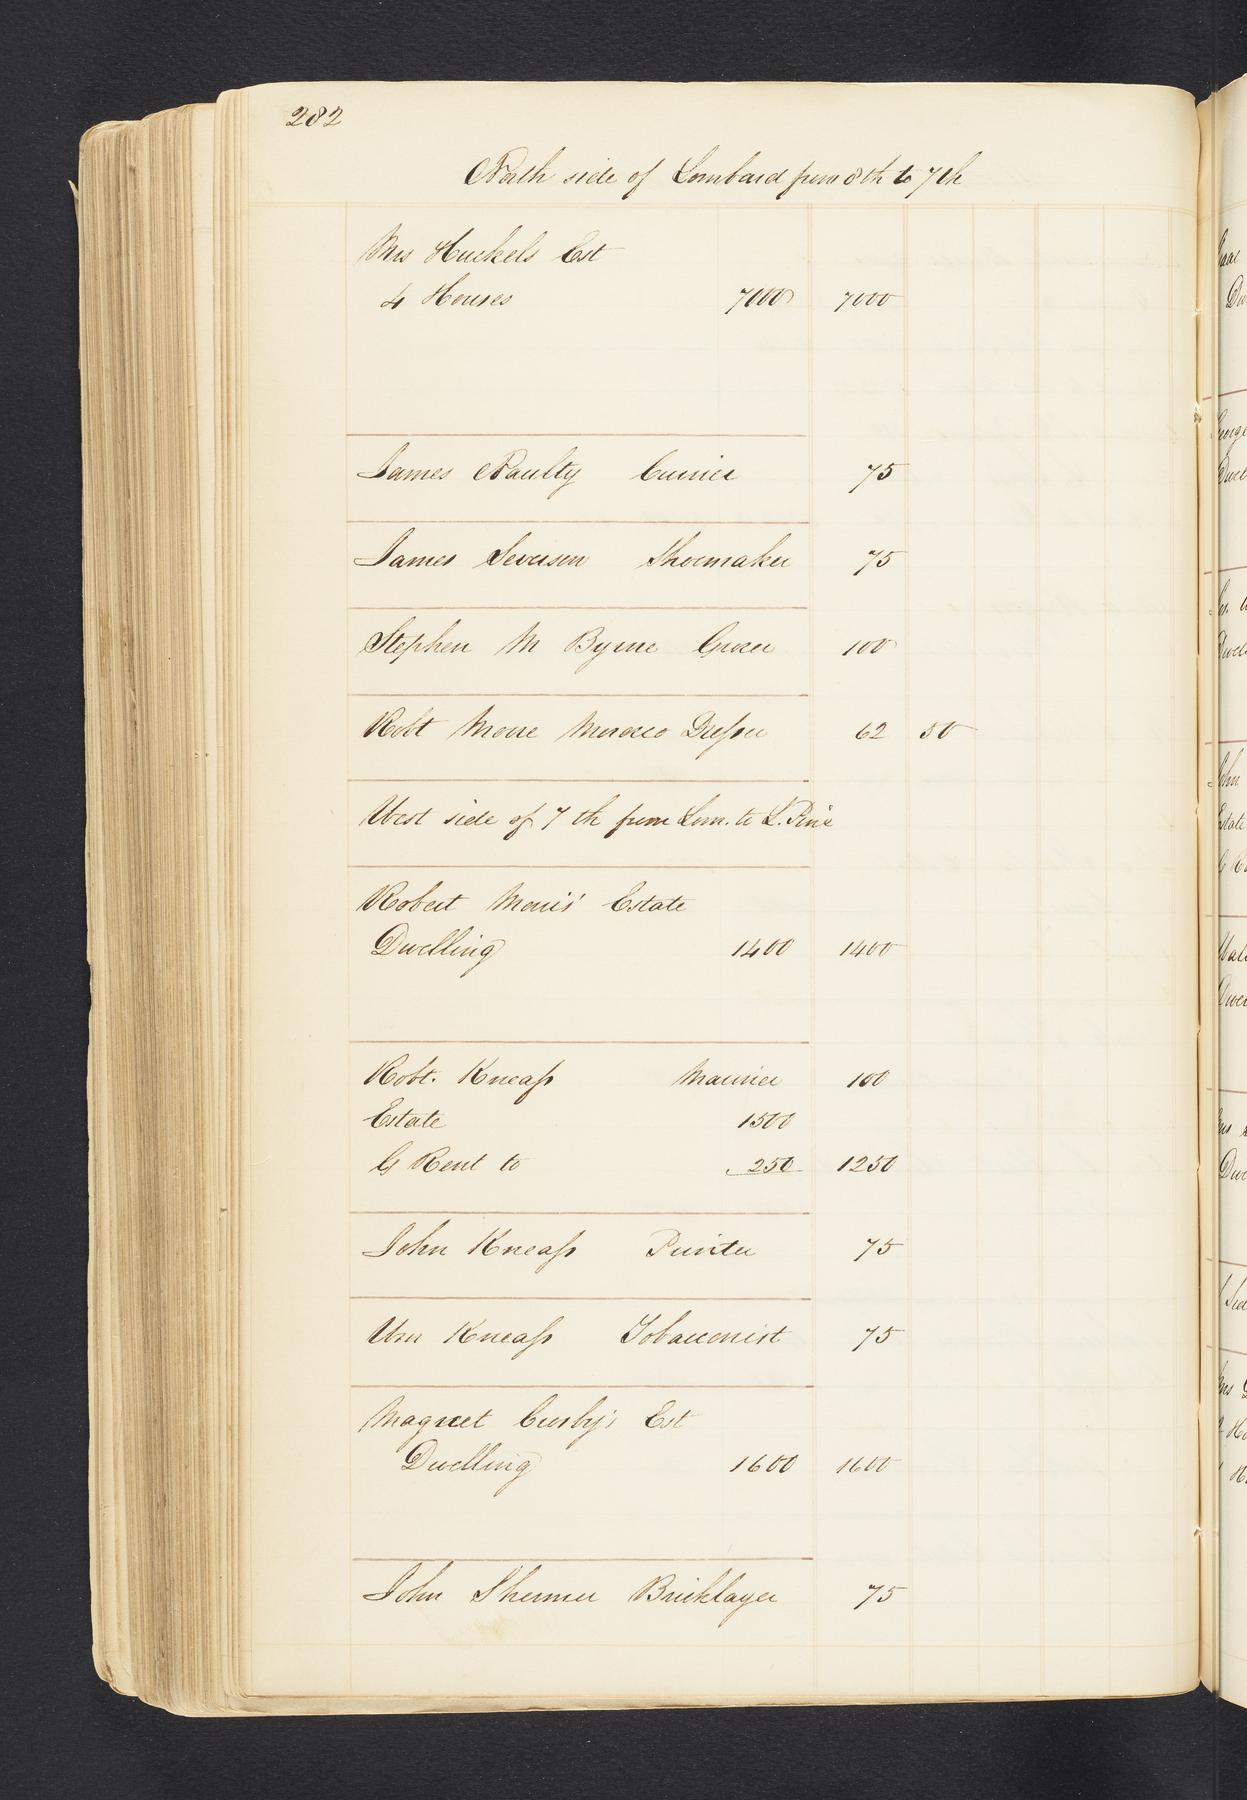 282
North side of Lombard from 8th to 7th
Mrs Huckels Est
4 Houses 7000 7000
James Naulty Currier 75
James Severson Shoemaker 75
Stephen M Byrne Grocer 100
Robt Morre Morocco Dresser 62 50
West side of 7th from Lom. to L. Pine
Robert Morris' Estate
Dwelling 1400 1400
Robt. Kneass Mariner 100
Estate 1500
G Rent to 250 1250
John Kneass Printer 75
Wm Kneass Tobacconist 75
Magreet Crosby's Est
Dwelling 1600 1600
John Shermer Bricklayer 75